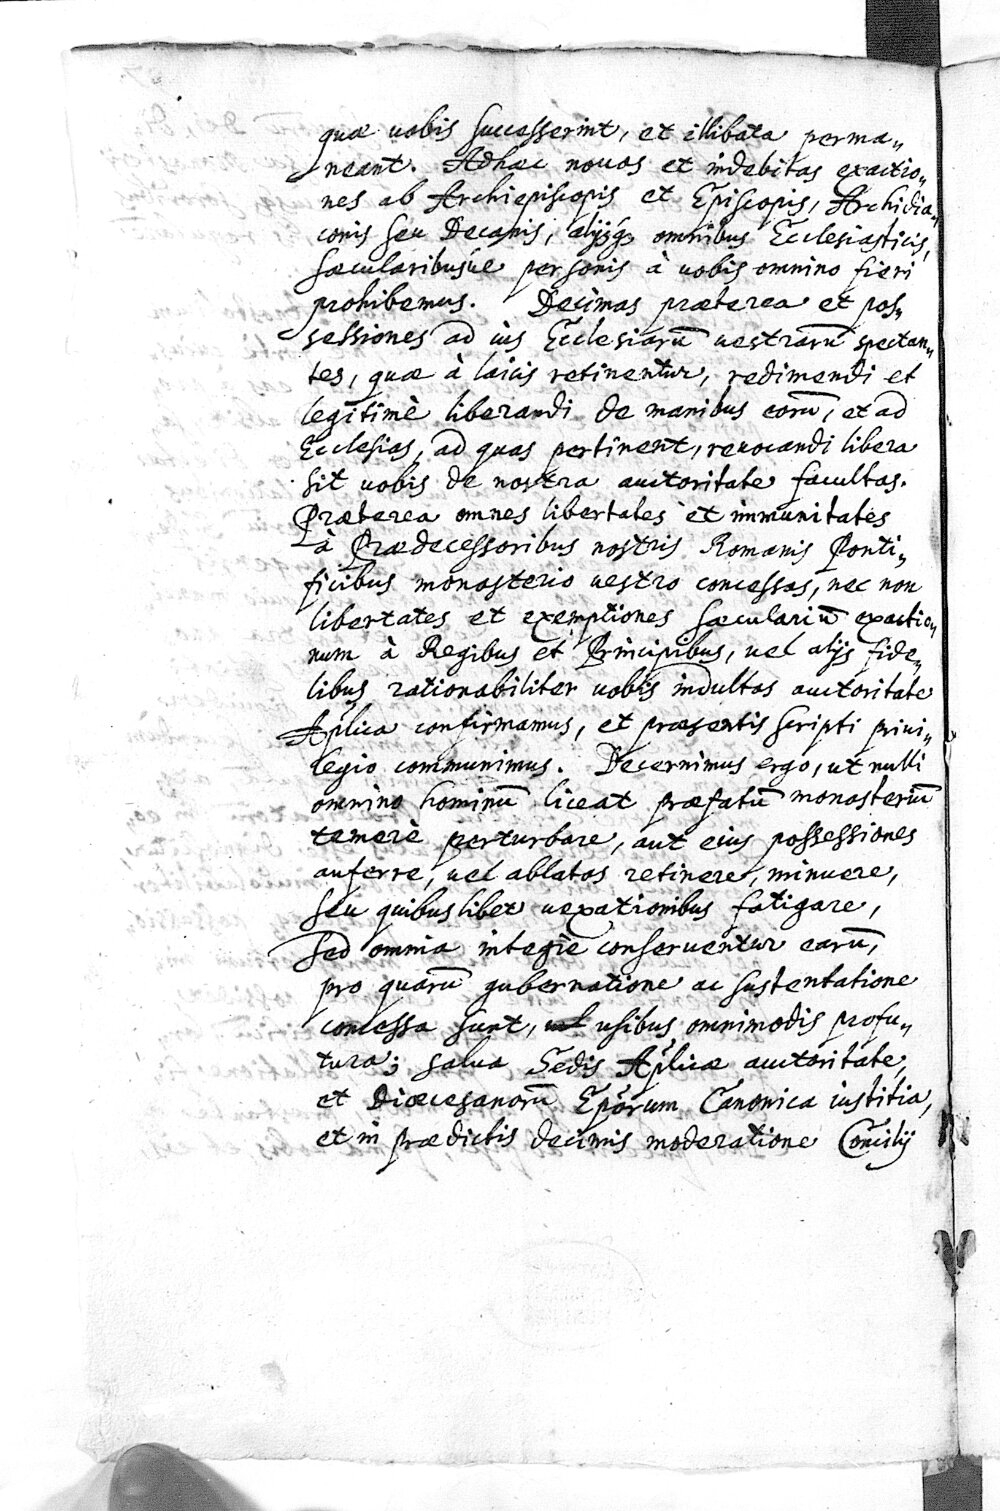 quæ uobis successerint, et illibata perma„
neant. Adhæc nouas et indebitas exactio„
nes ab Archiepiscopis et Episcopis, Archidia„
conis seu Decanis, alijsq; omnibus Ecclesiasticis,
sæcularibusue personis à uobis omnino fieri
prohibemus. Decimas præterea et pos„
sessiones ad ius Ecclesiarū uestrarū spectan„
tes, quæ à laicis retinentur, redimendi et
legitimè liberandi de manibus eorū, et ad
Ecclesias, ad quas pertinent, reuocandi libera
sit uobis de nostra auctoritate facultas.
Præterea omnes libertates et immunitates
à Prædecessoribus nostris Romanis Ponti„
ficibus monasterio uestro concessas, nec non
libertates et exemptiones sæculariū exactio„
num à Regibus et Principibus, uel alijs fide„
libus rationabiliter uobis indultas auctoritate
Aplica confirmamus, et præsentis scripti priui„
legio communimus. Decernimus ergo, ut nulli
omnino hominū liceat præfatū monasteriū
temerè perturbare, aut eius possessiones
auferre, uel ablatas retinere, minuere,
seu quibuslibet uexationibus fatigare,
sed omnia integrè conseruentur earū,
pro quarū gubernatione ac sustentatione
concessa sunt, usibus omnimodis profu„
tura; salua Sedis Aplicæ auctoritate,
et Diœcesanorū Epōrum Canonica iustitia,
et in prædictis decimis moderatione Concilij